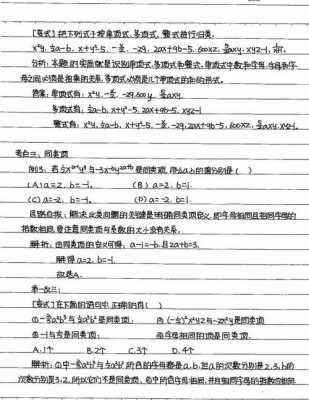 [变式]把下列式子按单项式、多项式、整式进行归类.
x²y, a-b, x+y²-5, -29, 2ax+9b-5, 600xz, axy, xyz-1,
分析:本题的实质就是识别单项式、多项式和整式.单项式中数和字母、字母和字
母之间必须是相乘的关系,多项式必须是几个单项式的和的形式.
答案:单项式有: x²y, -29, 600xz, axy.
多项式有: a-b, x+y²-5, 2ax+9b-5, xyz-1
整式有: x²y, a-b, x+y²-5, -29, 2ax+9b-5, 600xz, axy, xyz-1.
考点三:同类项
例3:若 与 是同类项,那么a,b的值分别是( )
(A) a=2, b=-1. (B) a=2, b=1.
(C) a=-2, b=-1. (D) a=-2, b=1.
思路点拨:解决此类问题的关键是明确同类项定义,即字母相同且相同字母的
指数相同,要注意同类项与系数的大小没有关系.
解析:由同类项的定义可得: a-1=-b,且2a+b=3,
解得a=2, b=-1.
故选A.
举一反三:
[变式]在下面的语句中,正确的有( )
①- a²b³与 a³b²是同类项; ② x²yz与-zx²y是同类项
③-1与 是同类项; ④字母相同的项是同类项.
A.1个 B.2个 C.3个 D.4个
解析:①中- a²b³与 a³b²所含的字母都是a,b,但a的次数分别是2,3,b的
次数分别是3,2,所以它们不是同类项,②中所含字母相同,并且相同字母的指数也相同